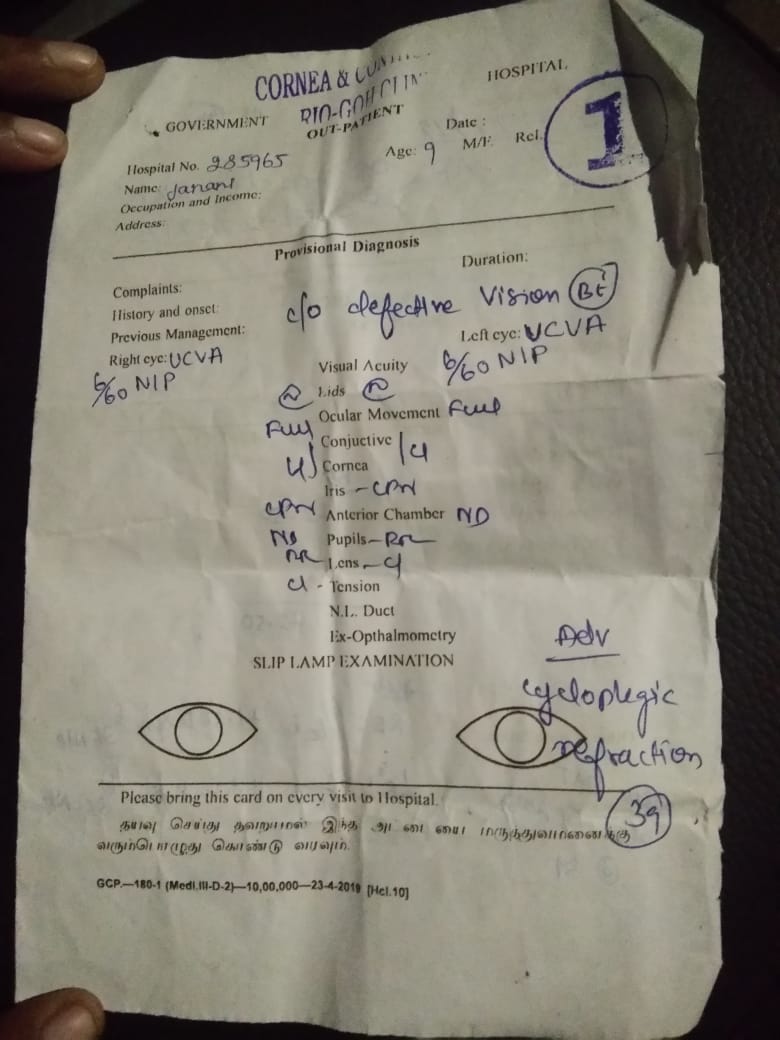 CORNEA &
RIO-GOH CLIN
GOVERNMENT HOSPITAL
OUT-PATIENT
1
Hospital No. 285965 Age: 9 M/F. Rel.
Date :
Name: Janani
Occupation and Income:
Address:
Provisional Diagnosis
Complaints: Duration:
History and onset: c/o defective Vision BE
Previous Management:
Right eye: UCVA Visual Acuity Left eye: UCVA
6/60 NIP 6/60 NIP
Lids
Full Ocular Movement Full
Conjuctive
Cornea
Iris
Anterior Chamber ND
ND Pupils
Lens
Tension
N.L. Duct
Ex-Opthalmometry
SLIP LAMP EXAMINATION
Adv
cycloplegic
refraction
Please bring this card on every visit to Hospital.
39
தயவு செய்து தவறாமல் இந்த அட்டையை மருத்துவமனைக்கு
வரும்பொழுது கொண்டு வரவும்.
GCP.—180-1 (Medl.III-D-2)—10,00,000—23-4-2019 [Hel.10]